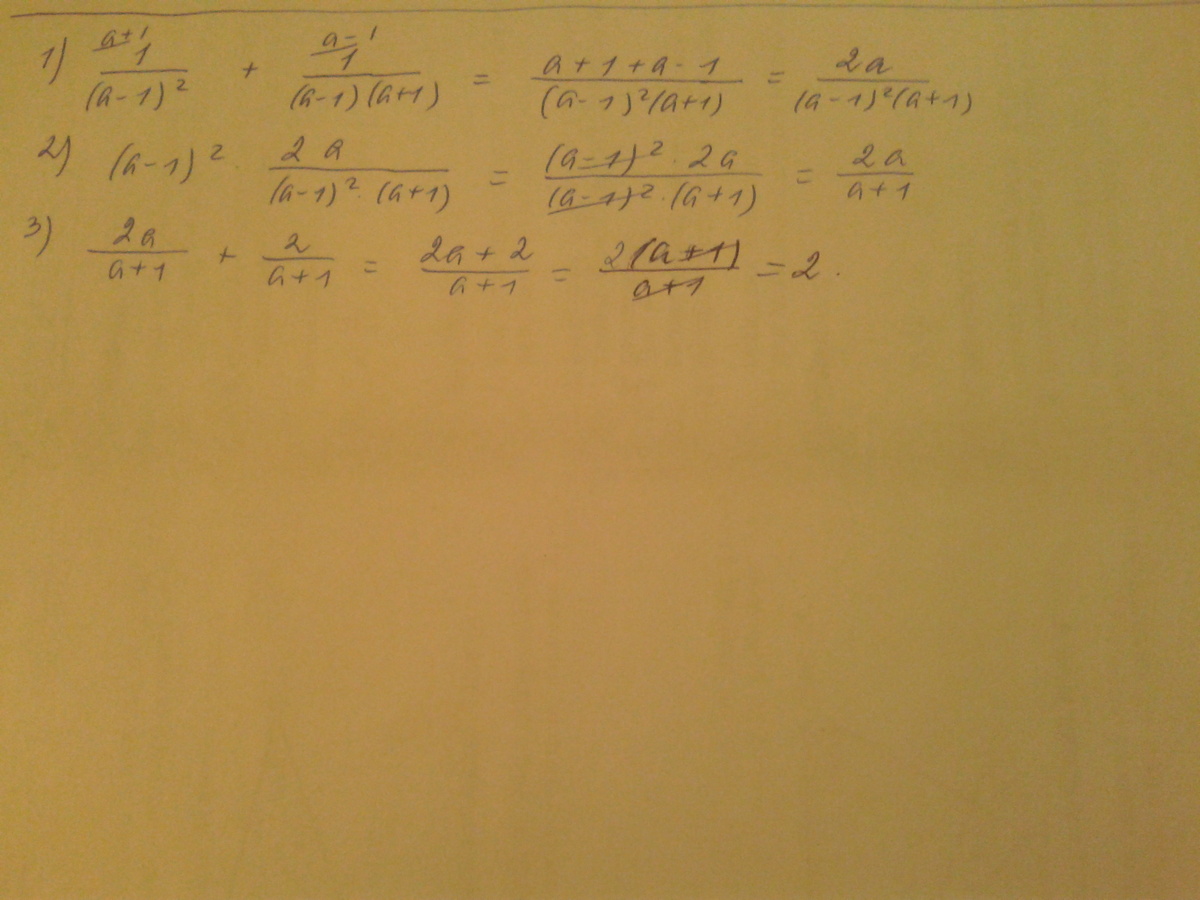 1) a+1 1/(a-1)² + a-1 1/(a-1)(a+1) = (a+1+a-1)/((a-1)²(a+1)) = 2a/((a-1)²(a+1))
2) (a-1)² · 2a/((a-1)²·(a+1)) = ((a-1)²·2a)/((a-1)²·(a+1)) = 2a/(a+1)
3) 2a/(a+1) + 2/(a+1) = (2a+2)/(a+1) = 2(a+1)/(a+1) = 2.